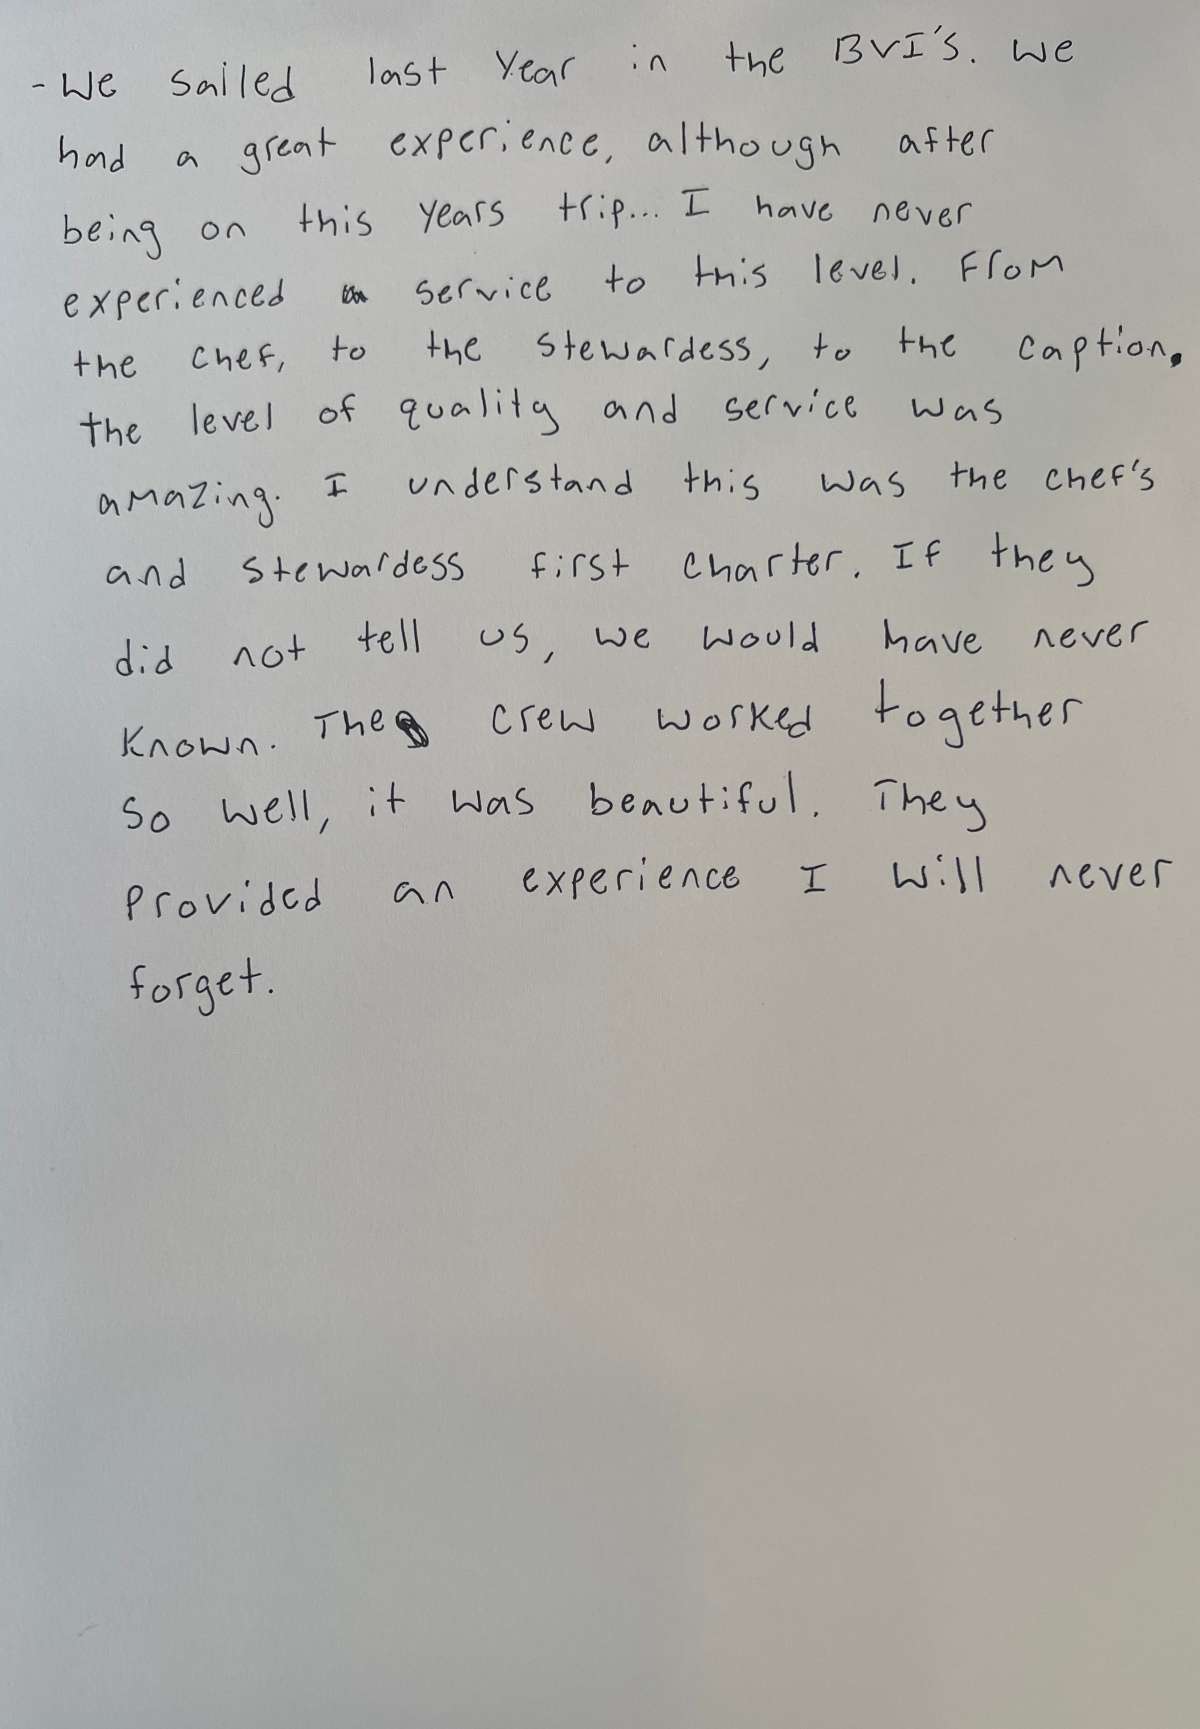 - We sailed last Year in the BVI's. We
had a great experience, although after
being on this years trip... I have never
experienced service to this level. From
the chef, to the stewardess, to the caption,
the level of quality and service was
amazing. I understand this was the chef's
and stewardess first charter. If they
did not tell us, we would have never
known. The crew worked together
so well, it was beautiful. They
provided an experience I will never
forget.